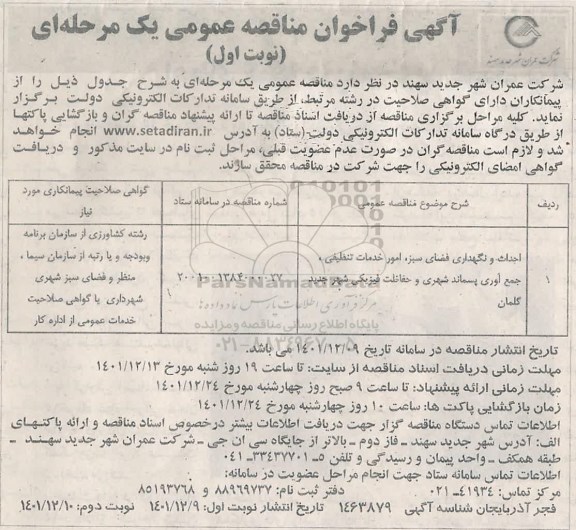 آگهی فراخوان مناقصه عمومی یک مرحله‌ای
(نوبت اول)
شرکت عمران شهر جدید سهند
شرکت عمران شهر جدید سهند در نظر دارد مناقصه عمومی یک مرحله‌ای به شرح جدول ذیل را از
پیمانکاران دارای گواهی صلاحیت در رشته مرتبط، از طریق سامانه تدارکات الکترونیکی دولت برگزار
نماید. کلیه مراحل برگزاری مناقصه از دریافت اسناد مناقصه تا ارائه پیشنهاد مناقصه گران و بازگشایی پاکتها
از طریق درگاه سامانه تدارکات الکترونیکی دولت (ستاد) به آدرس www.setadiran.ir انجام خواهد
شد و لازم است مناقصه‌گران در صورت عدم عضویت قبلی، مراحل ثبت نام در سایت مذکور و دریافت
گواهی امضای الکترونیکی را جهت شرکت در مناقصه محقق سازند.
ردیف
شرح موضوع مناقصه عمومی
شماره مناقصه در سامانه ستاد
گواهی صلاحیت پیمانکاری مورد نیاز
۱
احداث و نگهداری فضای سبز، امور خدمات تنظیفی،
جمع آوری پسماند شهری و حفاظت فیزیکی شهر جدید
گلمان
۲۰۰۱۰۰۱۳۸۴۰۰۰۰۲۷
رشته کشاورزی از سازمان برنامه
وبودجه و یا رتبه از سازمان سیما ،
منظر و فضای سبز شهری
شهرداری با گواهی صلاحیت
خدمات عمومی از اداره کار
ParsNamadData
مرکز فرآوری اطلاعات پارس نماد داده‌ها
پایگاه اطلاع رسانی مناقصه و مزایده
۰۲۱-۸۸۳۴۹۶۷۰-۵
تاریخ انتشار مناقصه در سامانه تاریخ ۱۴۰۱/۱۲/۰۹ می باشد.
مهلت زمانی دریافت اسناد مناقصه از سایت: تا ساعت ۱۹ روز شنبه مورخ ۱۴۰۱/۱۲/۱۳
مهلت زمانی ارائه پیشنهاد: تا ساعت ۹ صبح روز چهارشنبه مورخ ۱۴۰۱/۱۲/۲۴
زمان بازگشایی پاکت ها: ساعت ۱۰ روز چهارشنبه مورخ ۱۴۰۱/۱۲/۲۴
اطلاعات تماس دستگاه مناقصه گزار جهت دریافت اطلاعات بیشتر درخصوص اسناد مناقصه و ارائه پاکتهای
الف: آدرس شهر جدید سهند ـ فاز دوم ـ بالاتر از جایگاه سی ان جی ـ شرکت عمران شهر جدید سهند ـ
طبقه همکف ـ واحد پیمان و رسیدگی و تلفن ۵ـ ۳۳۴۳۷۷۰۱ـ ۰۴۱
اطلاعات تماس سامانه ستاد جهت انجام مراحل عضویت در سامانه:
مرکز تماس: ۴۱۹۳۴ـ۰۲۱ دفتر ثبت نام: ۸۸۹۶۹۷۳۷ و ۸۵۱۹۳۷۶۸
فجر آذربایجان شناسه آگهی ۱۴۶۳۸۷۹ تاریخ انتشار نوبت اول: ۱۴۰۱/۱۲/۹ نوبت دوم: ۱۴۰۱/۱۲/۱۰